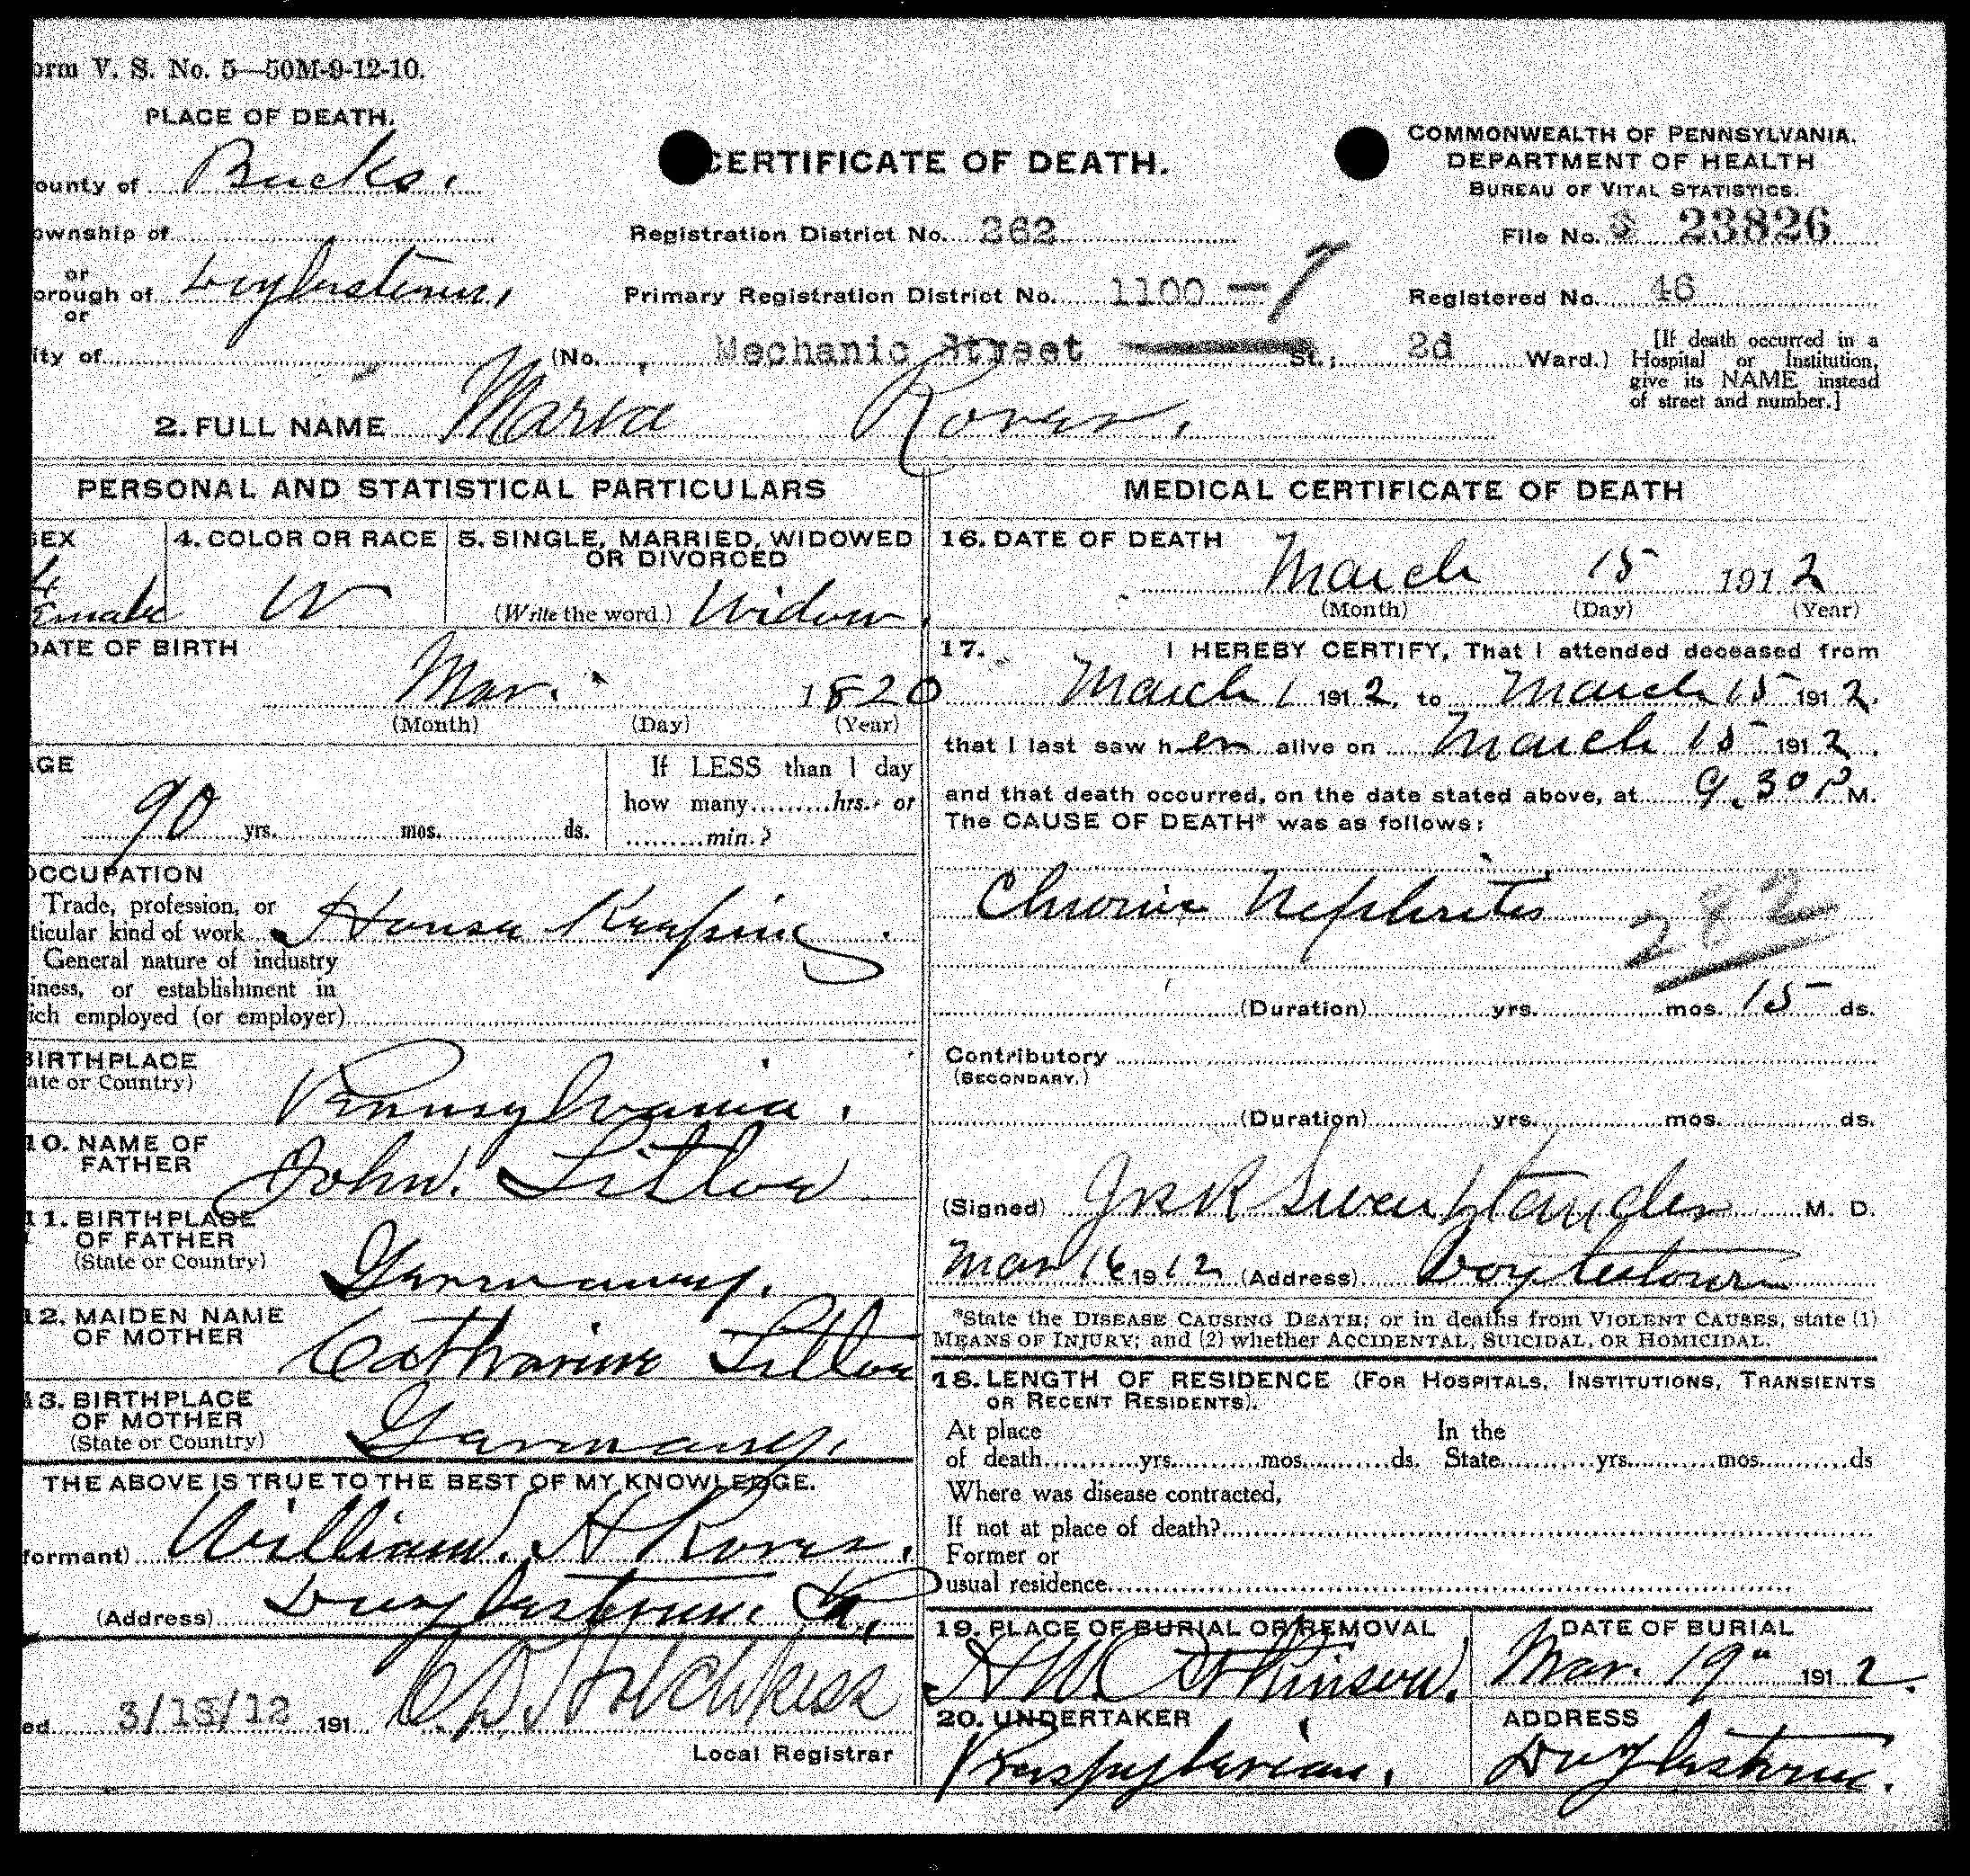 orm V. S. No. 5—50M-9-12-10.
PLACE OF DEATH.
CERTIFICATE OF DEATH.
COMMONWEALTH OF PENNSYLVANIA.
DEPARTMENT OF HEALTH
BUREAU OF VITAL STATISTICS.
ounty of Bucks.
ownship of
Registration District No. 262
File No. 23826
or
orough of Doylestown,
or
Primary Registration District No. 1100 — 7
Registered No. 46
ity of (No. , Mechanic Street St.; 2d Ward.)
[If death occurred in a
Hospital or Institution,
give its NAME instead
of street and number.]
2. FULL NAME Maria
PERSONAL AND STATISTICAL PARTICULARS
SEX
Female
4. COLOR OR RACE
W
5. SINGLE, MARRIED, WIDOWED
OR DIVORCED
(Write the word.) Widow.
DATE OF BIRTH
Mar. 1820
(Month) (Day) (Year)
AGE
90 yrs. mos. ds.
If LESS than 1 day
how many hrs. or
min.?
OCCUPATION
Trade, profession, or
ticular kind of work House Keeping.
General nature of industry
iness, or establishment in
ich employed (or employer)
BIRTHPLACE
ate or Country)
Pennsylvania.
10. NAME OF
FATHER
John.
11. BIRTHPLACE
OF FATHER
(State or Country)
Germany.
12. MAIDEN NAME
OF MOTHER
Catharine
13. BIRTHPLACE
OF MOTHER
(State or Country)
Germany.
THE ABOVE IS TRUE TO THE BEST OF MY KNOWLEDGE.
formant) William. H
(Address) Doylestown. Pa,
ed 3/18/12 191 C D. Hotchkiss
Local Registrar
MEDICAL CERTIFICATE OF DEATH
16. DATE OF DEATH
March 15 1912
(Month) (Day) (Year)
17. I HEREBY CERTIFY, That I attended deceased from
March 1 1912, to March 15 1912.
that I last saw her alive on March 15 1912.
and that death occurred, on the date stated above, at 9.30 P M.
The CAUSE OF DEATH* was as follows:
Chronic Nephritis
282
(Duration) yrs. mos. 15 ds.
Contributory
(SECONDARY.)
(Duration) yrs. mos. ds.
(Signed) M. D.
Mar 16 1912 (Address) Doylestown
*State the DISEASE CAUSING DEATH; or in deaths from VIOLENT CAUSES, state (1)
MEANS OF INJURY; and (2) whether ACCIDENTAL, SUICIDAL, OR HOMICIDAL.
18. LENGTH OF RESIDENCE (FOR HOSPITALS, INSTITUTIONS, TRANSIENTS
OR RECENT RESIDENTS).
At place
of death yrs. mos. ds.
In the
State yrs. mos. ds
Where was disease contracted,
If not at place of death?
Former or
usual residence
19. PLACE OF BURIAL OR REMOVAL
H W Atkinson.
DATE OF BURIAL
Mar. 19" 1912.
20. UNDERTAKER
Prespyterian.
ADDRESS
Doylestown.